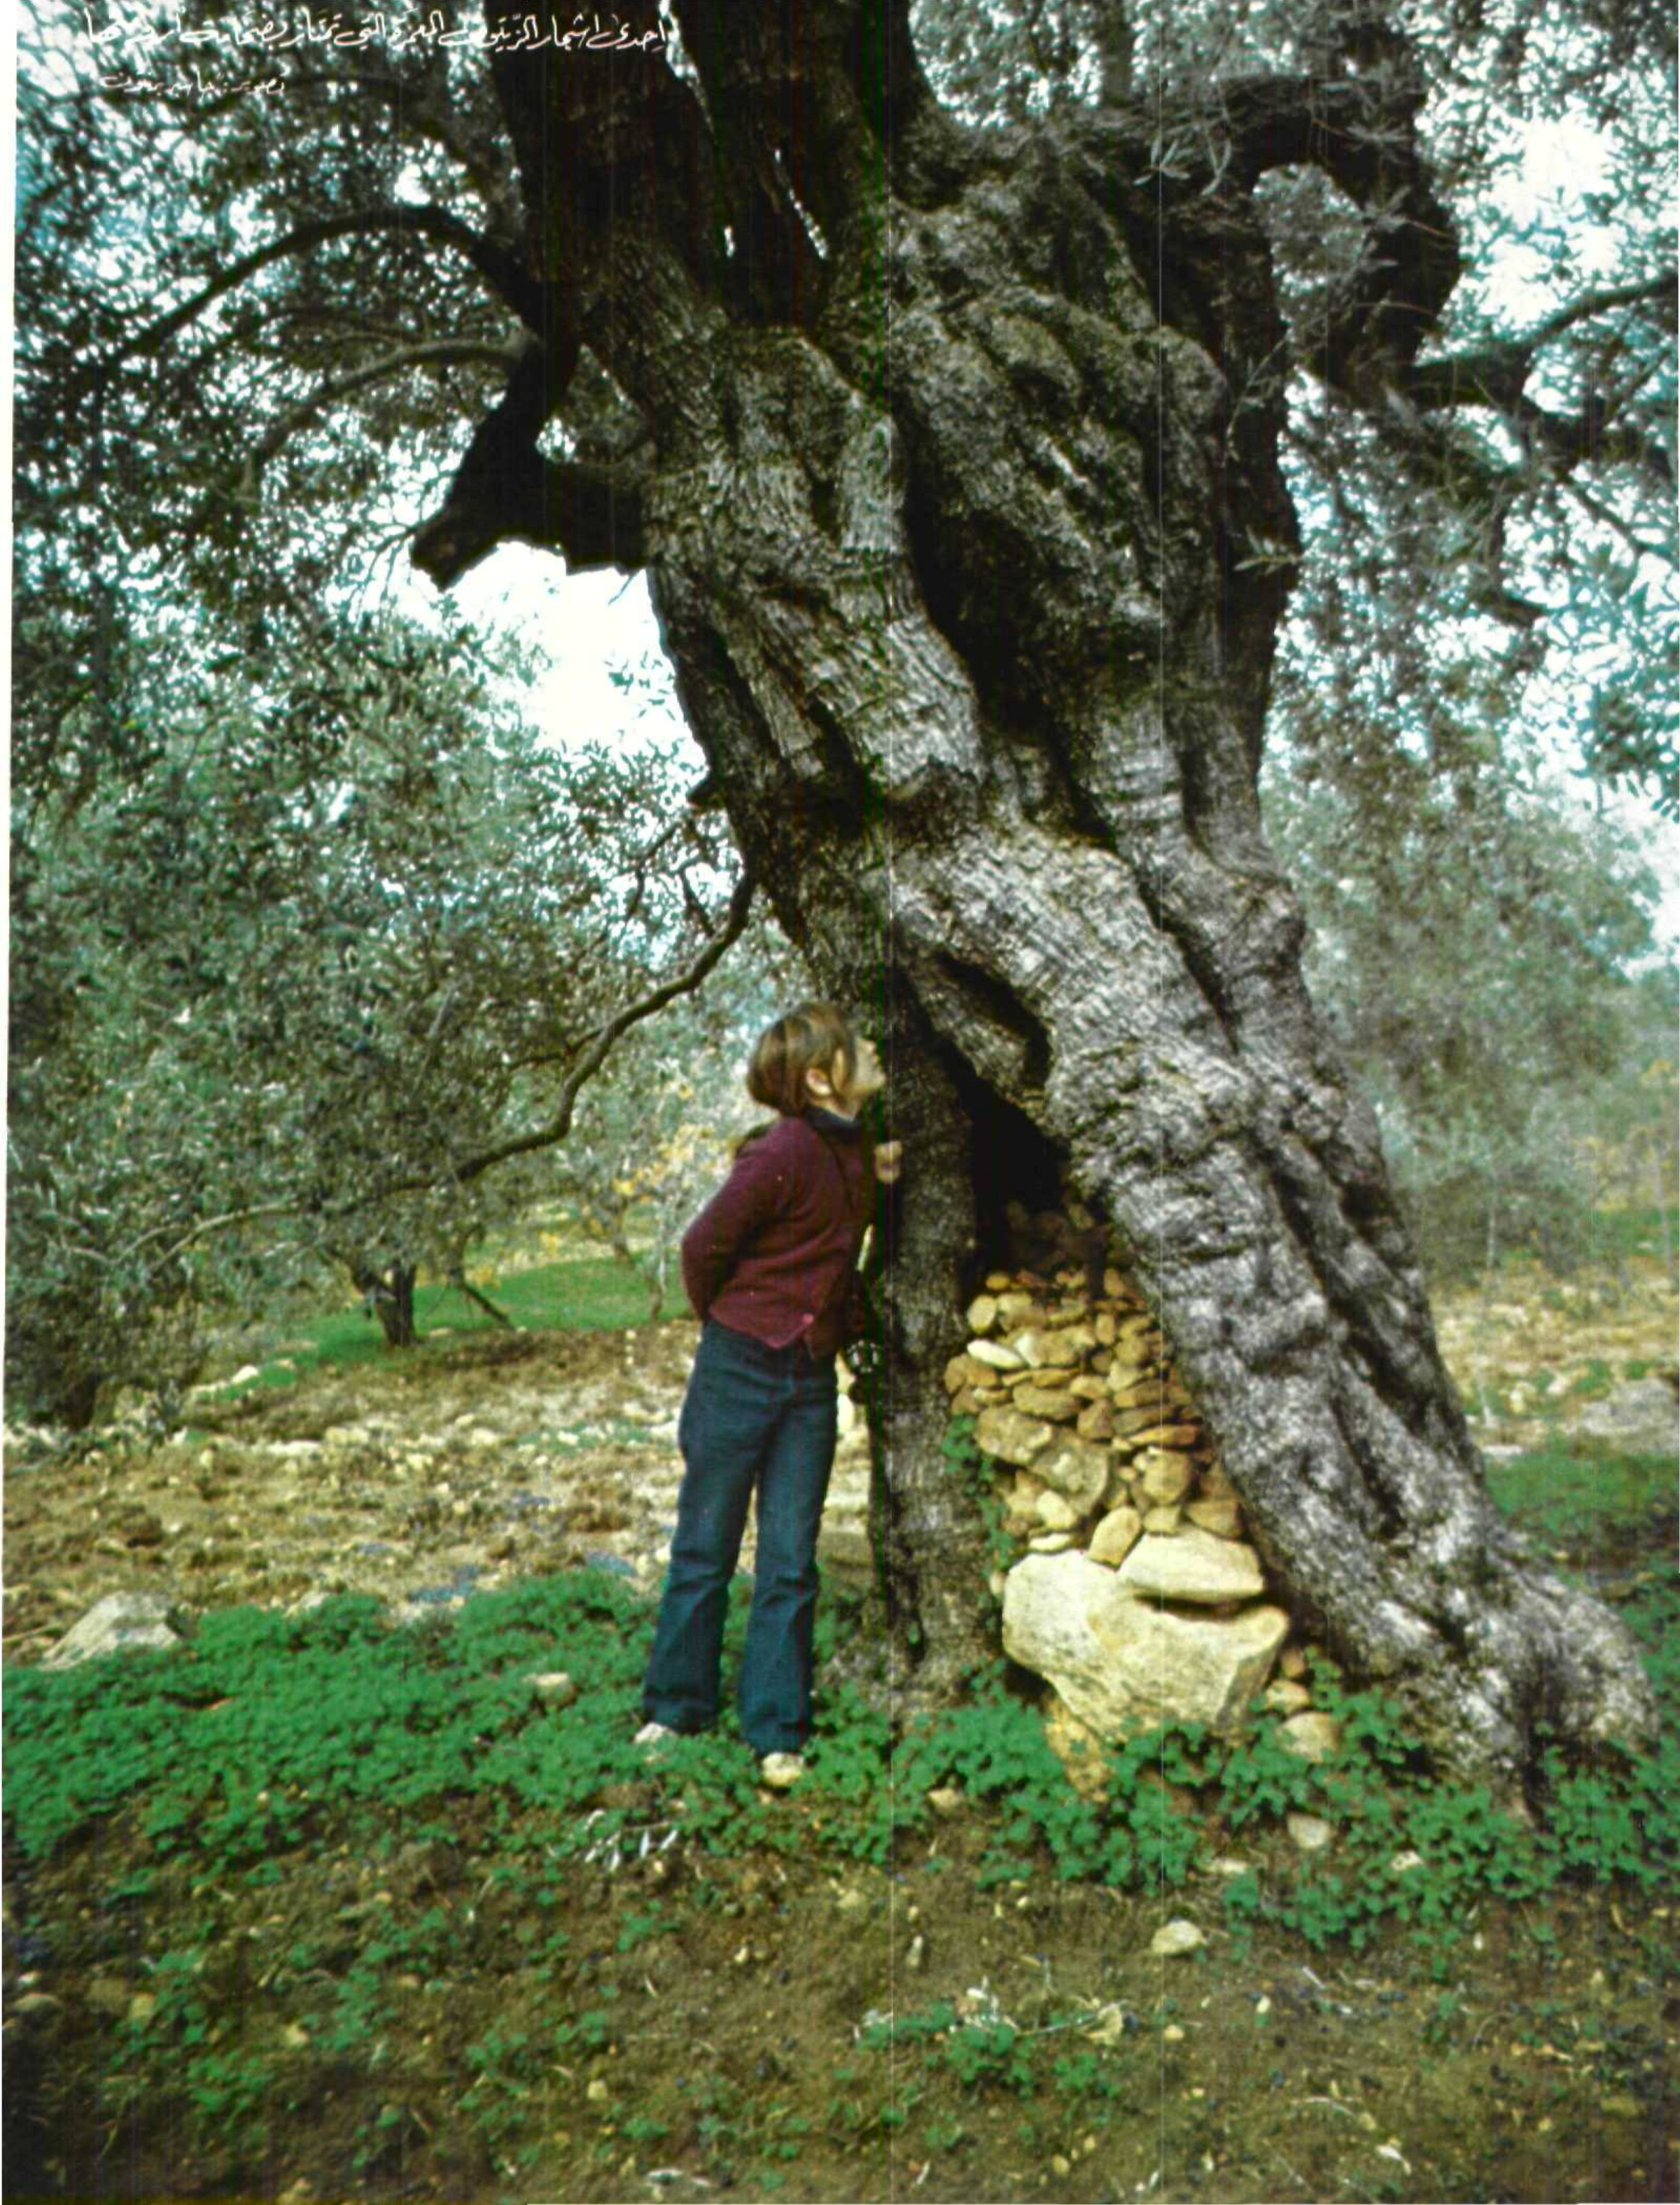 احدى اشجار الزيتون المعمرة التي تمتاز بضخامة
تصوير: